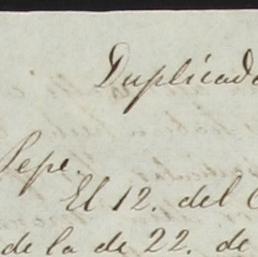 Duplicado
Sepe.
El 12. del
de la de 22. de